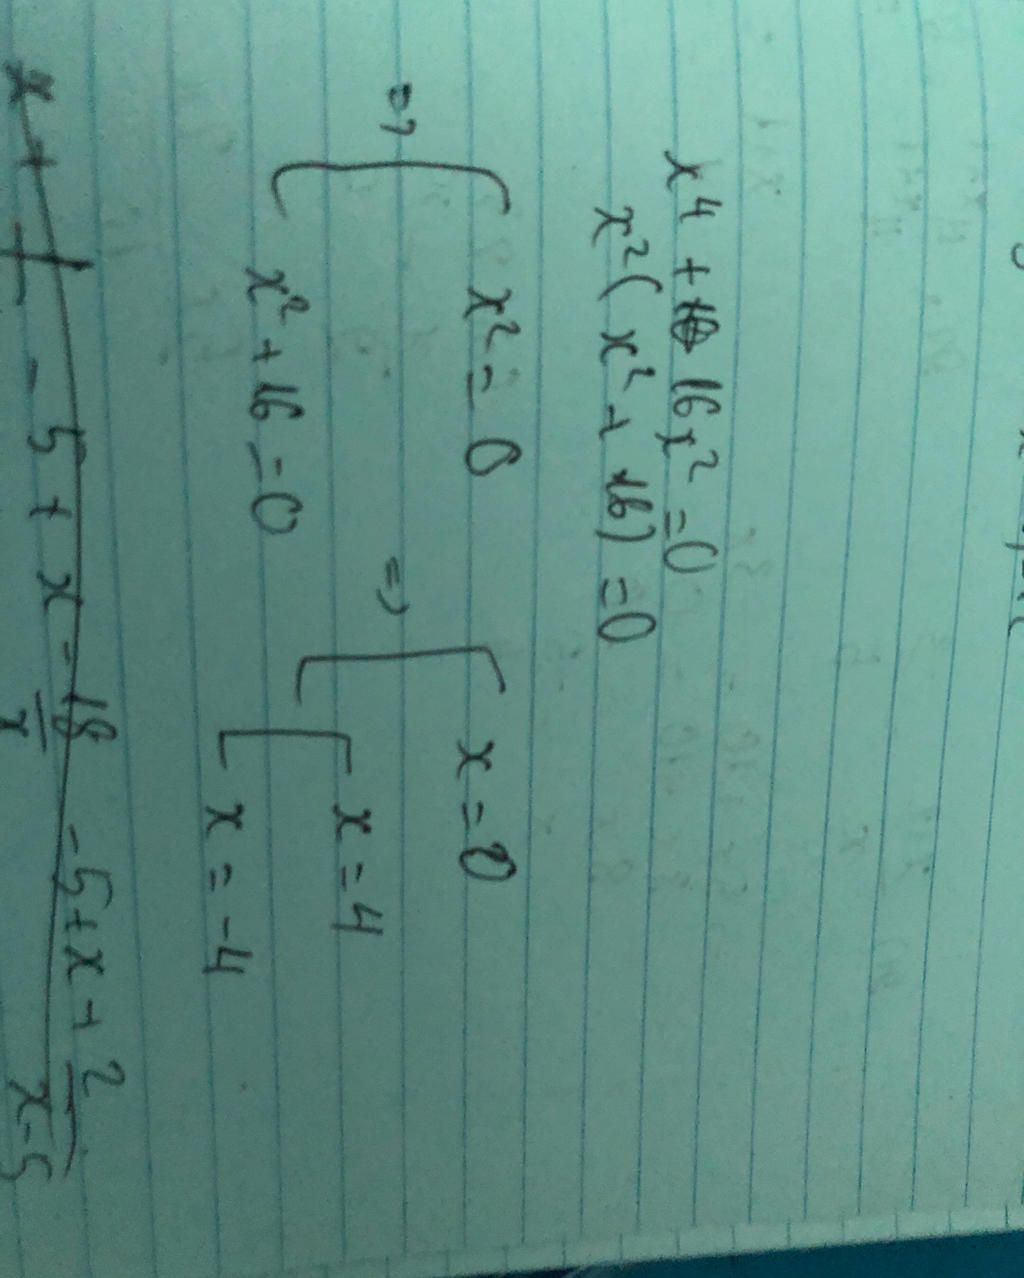 x⁴ + 16x² = 0
x²(x² + 16) = 0
=> [ x² = 0 => [ x = 0
x² + 16 = 0 [ x = 4
x = -4
- 5 + x = 18/x - 5 + x + 2/x-5